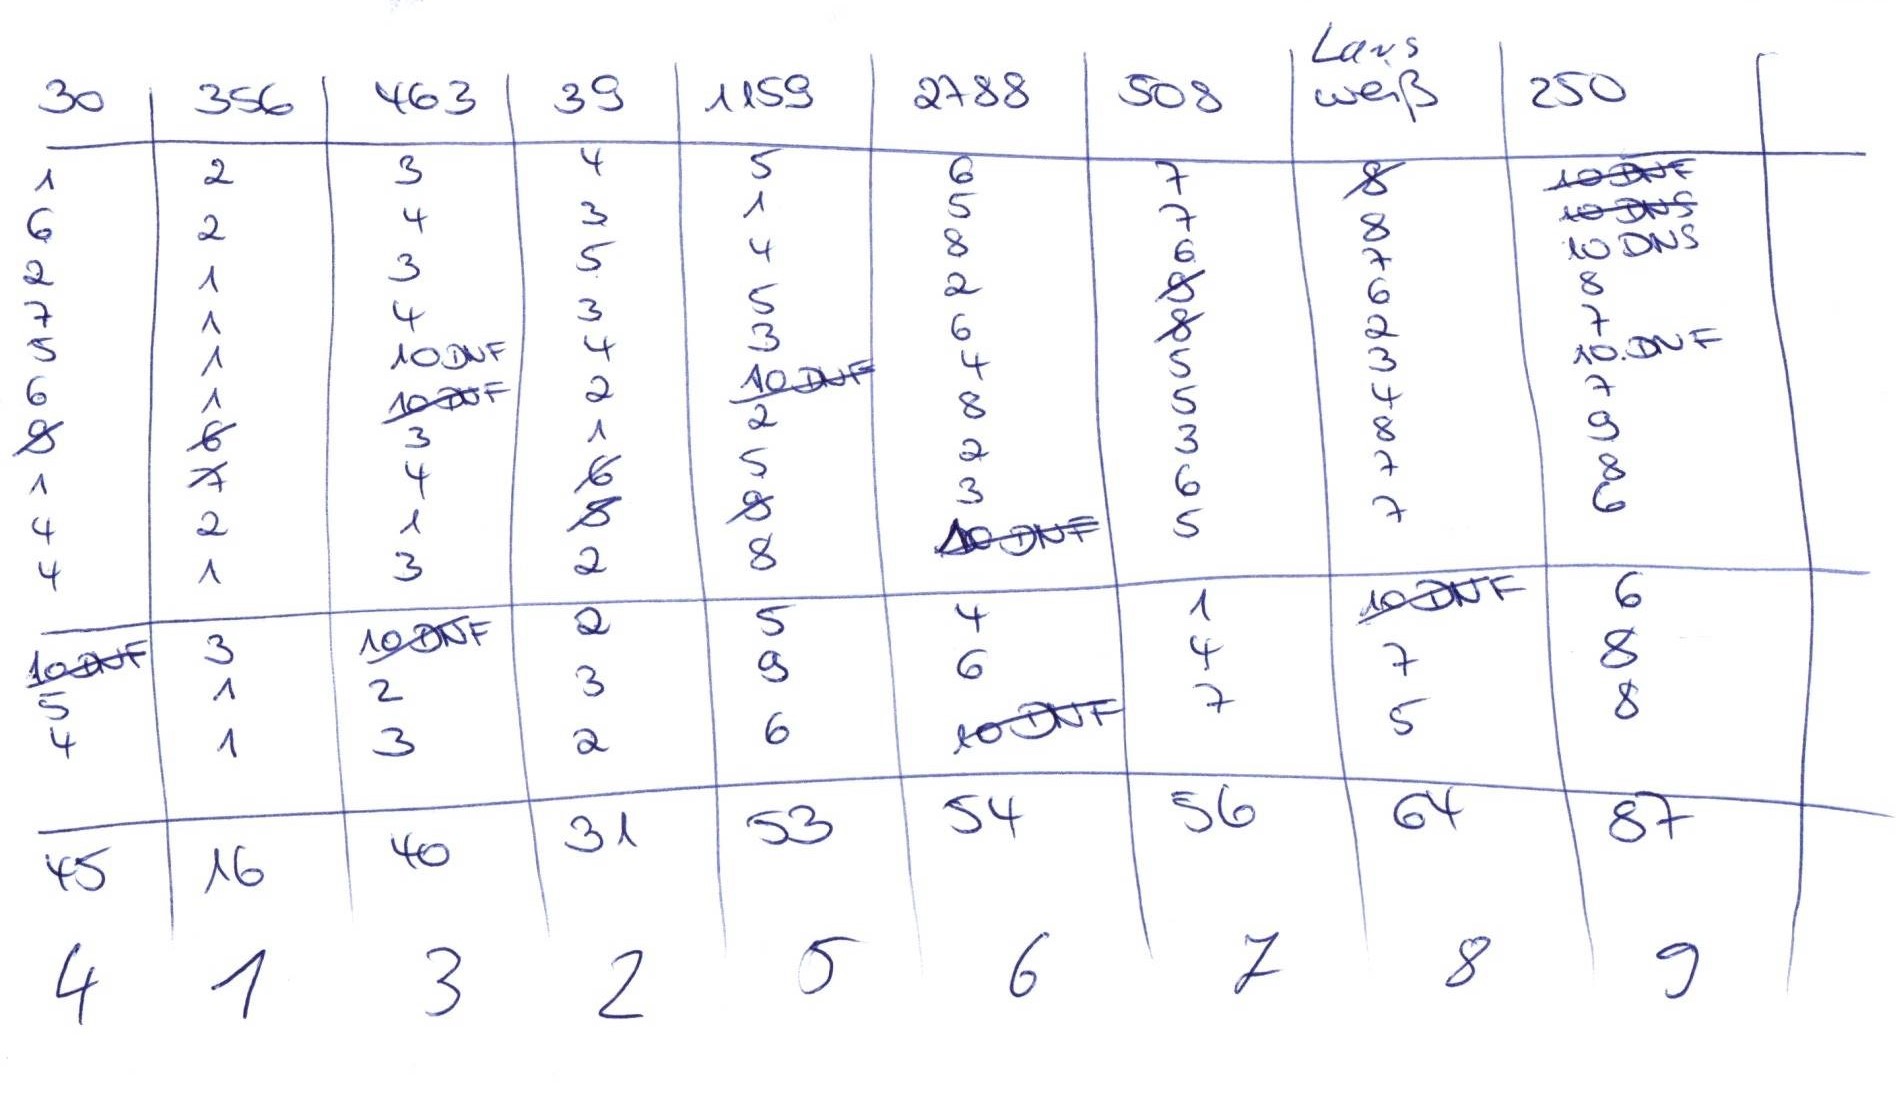 30 356 463 39 1159 2788 508 Lars weiß 250
1 2 3 4 5 6 7 8 10 DNF
6 2 4 3 1 5 7 8 10 DNS
2 1 3 5 4 8 6 7 10 DNS
7 1 4 3 5 2 8 6 8
5 1 10 DNF 4 3 6 8 2 7
6 1 10 DNF 2 10 DNF 4 5 3 10 DNF
8 6 3 1 2 8 5 4 7
1 7 4 6 5 2 3 8 9
4 2 1 8 8 3 6 7 8
4 1 3 2 8 10 DNF 5 7 6
10 DNF 3 10 DNF 2 5 4 1 10 DNF 6
5 1 2 3 9 6 4 7 8
4 1 3 2 6 10 DNF 7 5 8
45 16 40 31 53 54 56 64 87
4 1 3 2 5 6 7 8 9